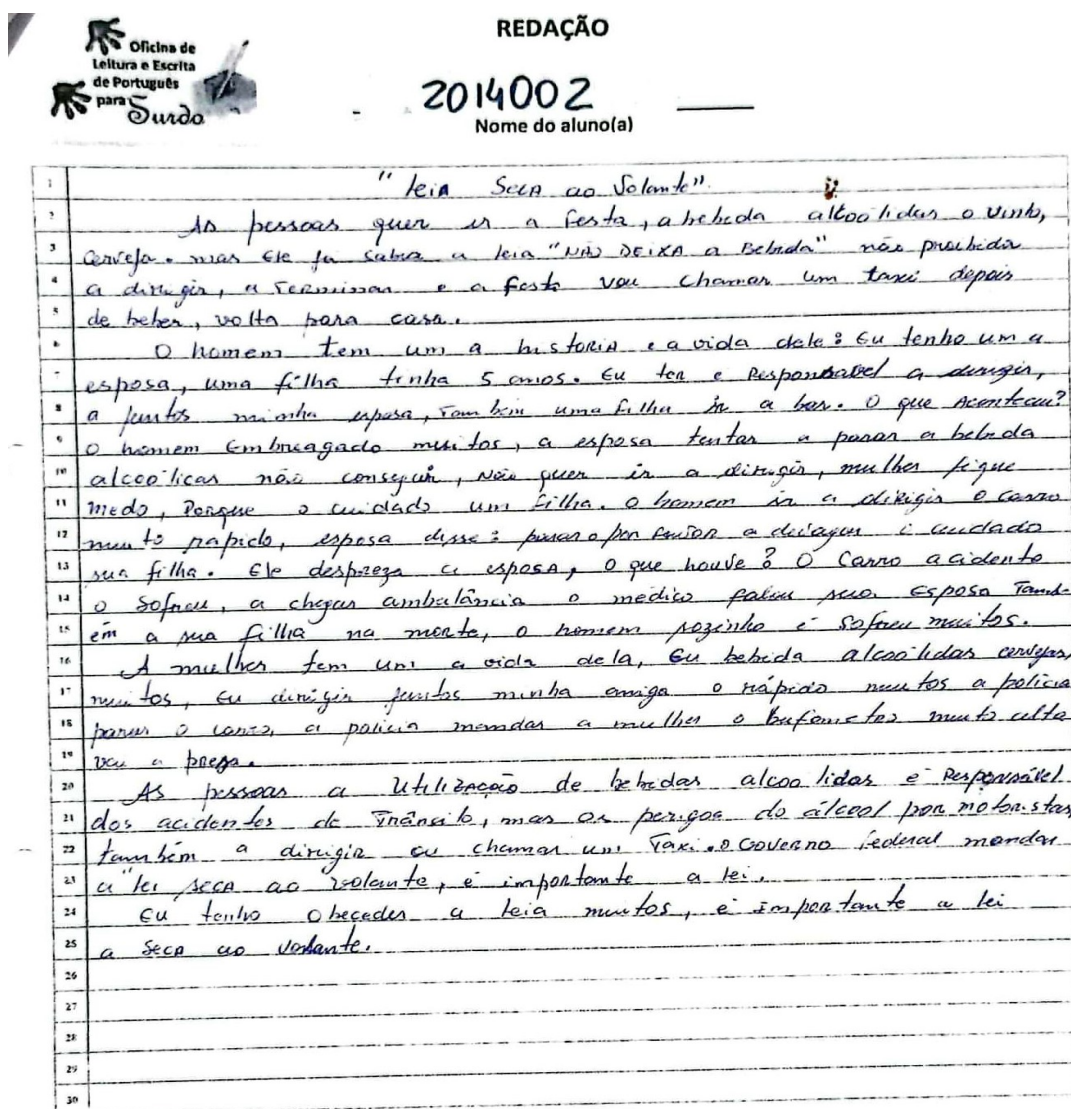 Oficina de
Leitura e Escrita
de Português
para Surdo
REDAÇÃO
2014002
Nome do aluno(a)
1 "leia Seca ao Volante".
2 As pessoas quer ir a festa, a bebida alcoolidas o vinho,
3 cerveja. mas ele ja sabia a leia "NÃO DEIXA a Bebida" não proibida
4 a dirigir, a Terminar e a festa vou chamar um taxi depois
5 de beber, volta para casa.
6 O homem tem um a historia e a vida dele: Eu tenho um a
7 esposa, uma filha tinha 5 anos. Eu ter e Responsavel a dirigir,
8 a juntos minha esposa, Tambem uma filha ir a bar. O que Aconteceu?
9 O homem Embreagado muitos, a esposa tentar a parar a bebida
10 alcoolicas não conseguir, Não quer ir a dirigir, mulher fique
11 medo, Porque o cuidado um filha. O homem ir a dirigir o carro
12 muito rapido, esposa disse: parar o por favor a cuidado
13 sua filha. Ele despreza a esposa, o que houve? O Carro acidento
14 o Sofreu, a chegar ambulância o médico falou sua Esposa Tamb-
15 ém a sua filha na morte, o homem sozinho e Sofreu muitos.
16 A mulher tem um a vida dela, Eu bebida alcoolidas cervejas,
17 muitos, Eu dirigir juntos minha amiga o rápido muitos a policia
18 parar o carro, a policia mandar a mulher o bafometro muito alta
19 vou a presa.
20 As pessoas a Utilização de bebidas alcoolidas é Responsável
21 dos acidentes de Trânsito, mas os perigos do álcool por motoristas
22 também a dirigir ou chamar um Taxi. O Governo Federal mandar
23 a "lei seca ao volante, é importante a lei.
24 Eu tenho Obeceder a leia muitos, é importante a lei
25 a Seca ao volante.
26
27
28
29
30